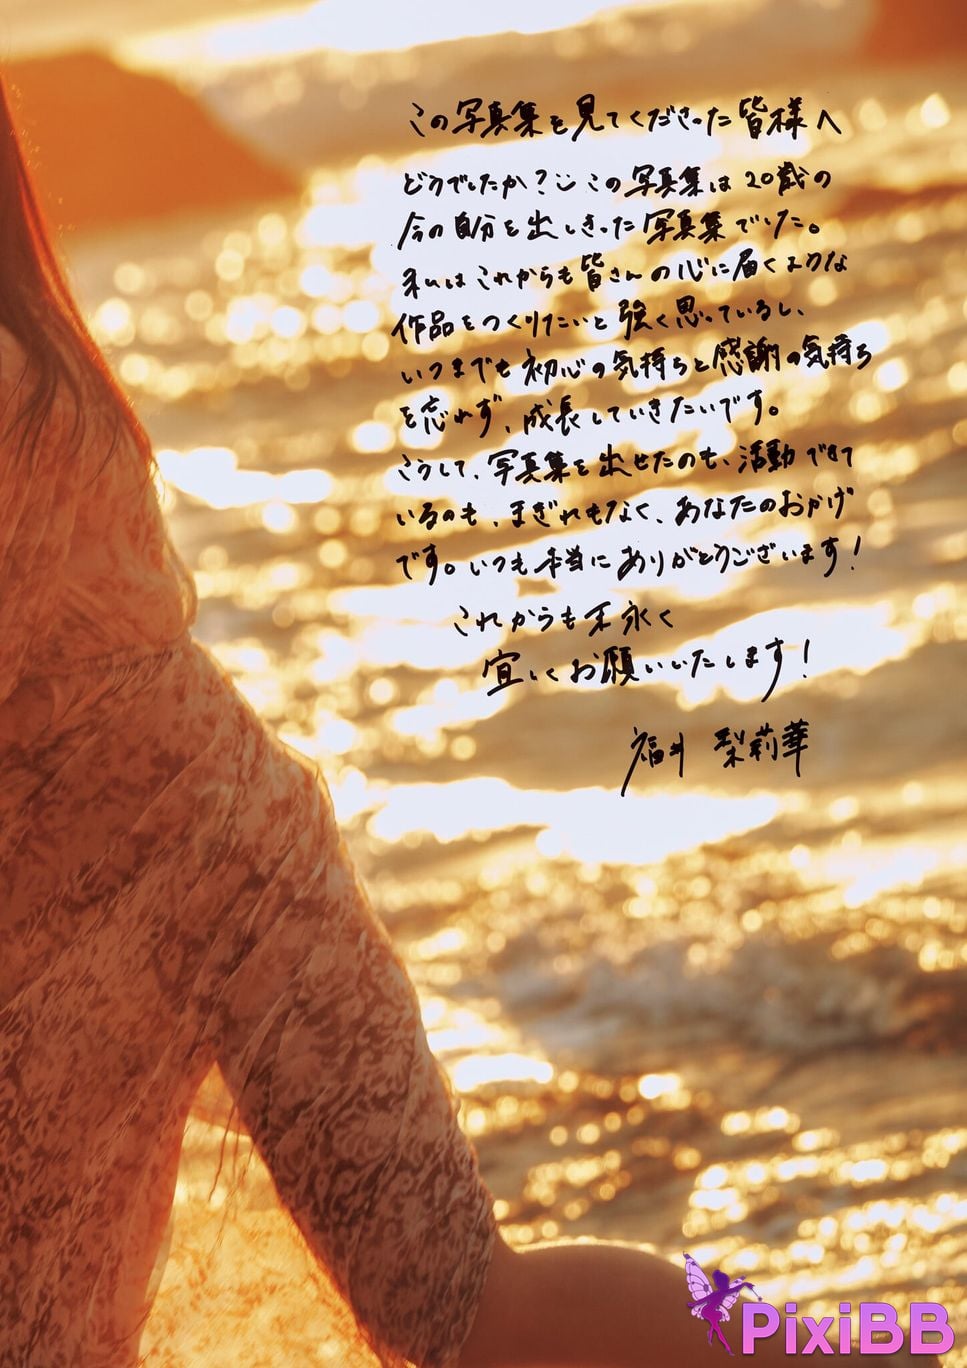 この写真集を見てくださった皆様へ
どうでしたか？ この写真集は20歳の
今の自分を出しきった写真集でした。
私はこれからも皆さんの心に届くような
作品をつくりたいと強く思っているし、
いつまでも初心の気持ちと感謝の気持ち
を忘れず、成長していきたいです。
こうして、写真集を出せたのも、活動できて
いるのも、まぎれもなく、あなたのおかげ
です。いつも本当にありがとうございます！
これからも末永く
宜しくお願いいたします！
福井 梨莉華
PixiBB